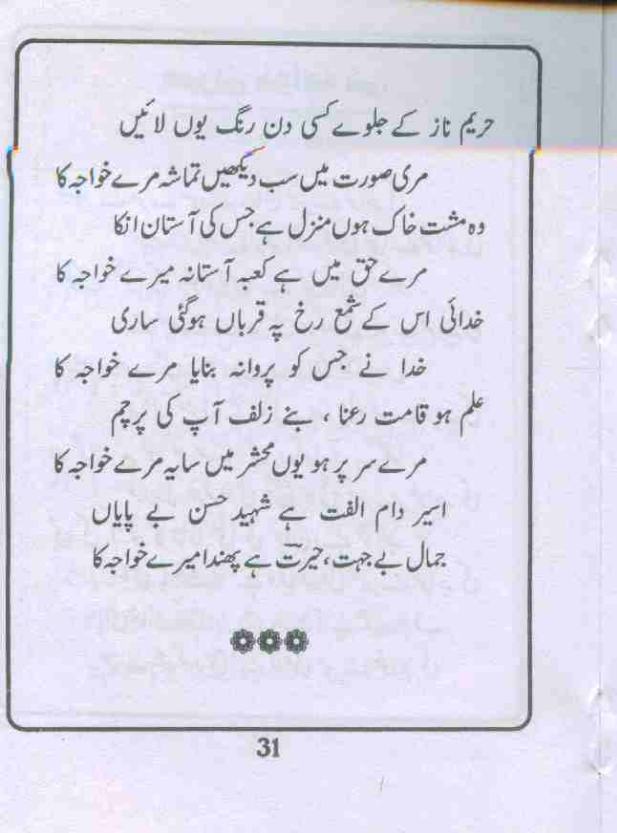 حریم ناز کے جلوے کسی دن رنگ یوں لائیں
مری صورت میں سب دیکھیں تماشہ مرے خواجہ کا
وہ مشت خاک ہوں منزل ہے جس کی آستان انکا
مرے حق میں ہے کعبہ آستانہ میرے خواجہ کا
خدائی اس کے شمع رخ پہ قرباں ہوگئی ساری
خدا نے جس کو پروانہ بنایا مرے خواجہ کا
علم ہو قامت رعنا ، بنے زلف آپ کی پرچم
مرے سر پر ہو یوں محشر میں سایہ مرے خواجہ کا
اسیر دام الفت ہے شہید حسن بے پایاں
جمال بے جہت، حیرت ہے پھندا میرے خواجہ کا
31